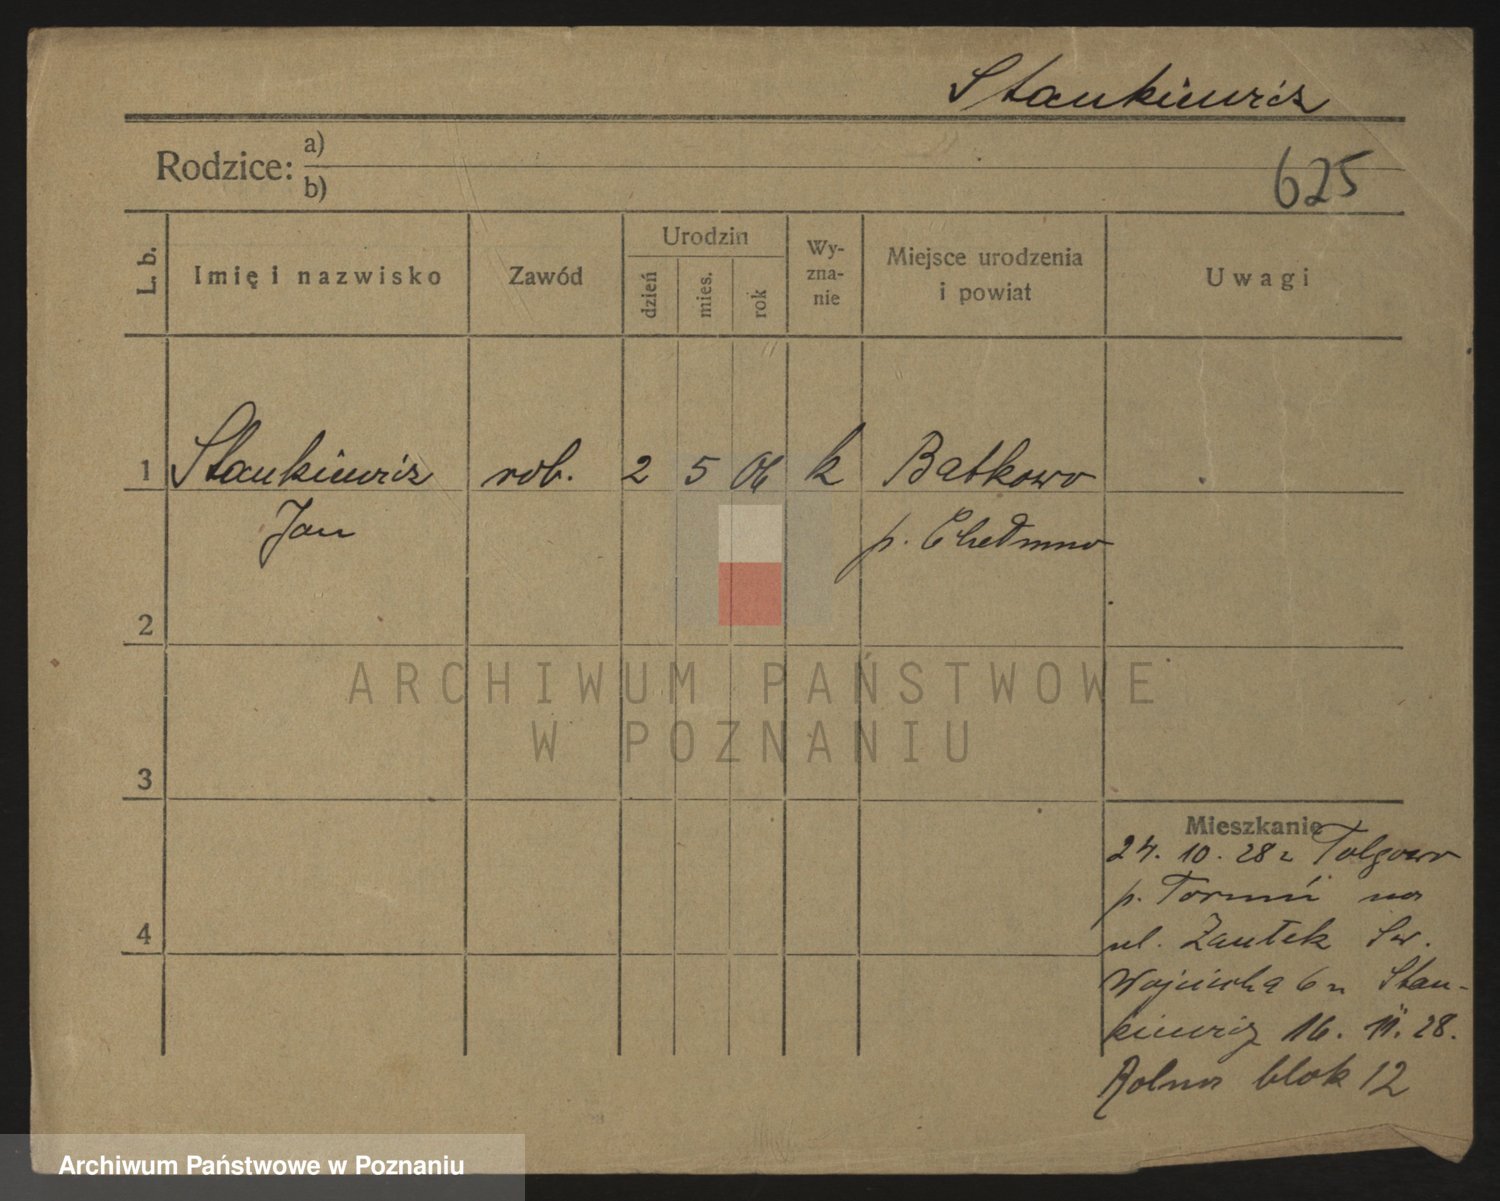 Stankiewicz
Rodzice: a)
b)
625
L. b.
Imię i nazwisko
Zawód
Urodzin
dzień
mies.
rok
Wy-
zna-
nie
Miejsce urodzenia
i powiat
Uwagi
1 Stankiewicz rob. 2 5 06 k Batkowo
Jan p. Chełmno
2
ARCHIWUM PAŃSTWOWE
W POZNANIU
3
4
Mieszkanie
24. 10. 28 z
p. Toruń na
ul. Zaułek Św.
Wojciecha 6 u Stan-
kiewicz 16. 11. 28.
Rolna blok 12
Archiwum Państwowe w Poznaniu